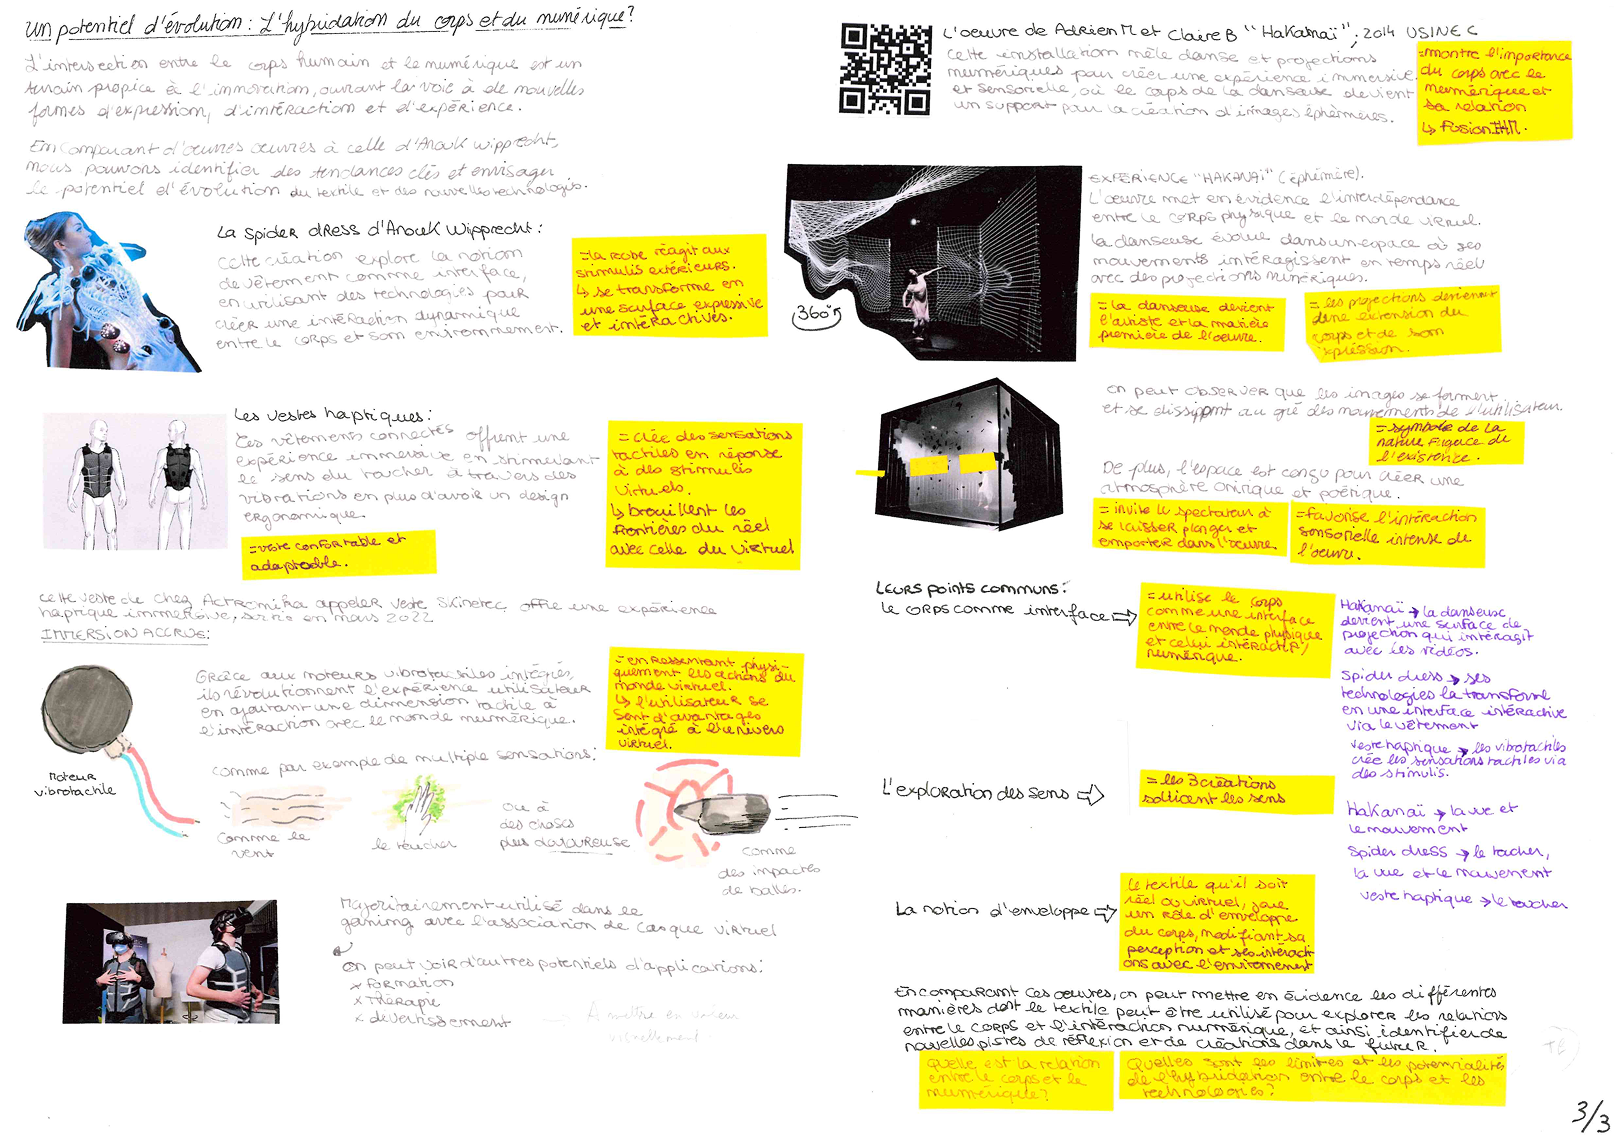 Un potentiel d'évolution : L'hybridation du corps et du numérique ?
L'intersection entre le corps humain et le numérique est un
terrain propice à l'innovation, ouvrant la voie à de nouvelles
formes d'expression, d'intéraction et d'expérience.
En comparant d'oeuvres oeuvres à celle d'Anouk Wipprecht,
nous pouvons identifier des tendances clés et envisager
le potentiel d'évolution du textile et des nouvelles technologies.
La Spider dress d'Anouk Wipprecht :
Cette création explore la notion
de vêtement comme interface,
en utilisant des technologies pour
créer une intéraction dynamique
entre le corps et son environnement.
= la robe réagit aux
stimulis extérieurs.
↳ se transforme en
une surface expressive
et intéractives.
Les vestes haptiques :
Ces vêtements connectés offrent une
expérience immersive en stimulant
le sens du toucher à travers des
vibrations en plus d'avoir un design
ergonomique.
= veste confortable et
adaptable.
= crée des sensations
tactiles en réponse
à des stimulis
virtuels.
↳ brouillent les
frontières du réel
avec celle du virtuel
Cette veste de chez Actronika appeler veste Skinetic, offre une expérience
haptique immersive, sortie en mars 2022
IMMERSION ACCRUE :
Grâce aux moteurs vibrotactiles intégrés,
ils révolutionnent l'expérience utilisateur
en ajoutant une dimension tactile à
l'intéraction avec le monde numérique.
= en ressentant physi-
quement les actions du
monde virtuel.
↳ l'utilisateur se
sent d'avantages
intégré à l'univers
virtuel.
Moteur
vibrotactile
comme par exemple de multiple sensations :
Comme le
vent
le toucher
ou à
des choses
plus douloureuse
comme
des impactes
de balles.
Majoritairement utilisé dans le
gaming avec l'association de casque virtuel
On peut voir d'autres potentiels d'applications :
x formation
x Thérapie
x divertissement
→ A mettre en valeur
visuellement
L'oeuvre de Adrien M et Claire B "Hakanaï", 2014 USINE C
Cette installation mêle danse et projections
numériques pour créer une expérience immersive
et sensorielle, où le corps de la danseuse devient
un support pour la création d'images éphémères.
= montre l'importance
du corps avec le
numérique et
sa relation
↳ fusion
EXPÉRIENCE "HAKANAÏ" (éphémère).
L'oeuvre met en évidence l'interdépendance
entre le corps physique et le monde virtuel.
La danseuse évolue dans un espace où ses
mouvements intéragissent en temps réel
avec des projections numériques.
360°
= la danseuse devient
l'artiste et la matière
première de l'oeuvre.
= les projections deviennent
une extension du
corps et de son
expression.
On peut observer que les images se forment
et se dissippent au gré des mouvements de l'utilisateur.
= symbole de la
nature fugace de
l'existence.
De plus, l'espace est conçu pour créer une
atmosphère onirique et poétique.
= invite le spectateur à
se laisser plonger et
emporter dans l'oeuvre
= favorise l'intéraction
sensorielle intense de
l'oeuvre.
Leurs points communs :
le corps comme interface ⇒
= utilise le corps
comme une interface
entre le monde physique
et celui interactif/
numérique.
Hakanaï → la danseuse
devient une surface de
projection qui intéragit
avec les vidéos.
Spider dress → ses
technologies la transforme
en une interface intéractive
via le vêtement
veste haptique → les vibrotactiles
crée les sensations tactiles via
des stimulis.
L'exploration des sens ⇒
= les 3 créations
solicient les sens
Hakanaï → la vue et
le mouvement
Spider dress → le toucher,
la vue et le mouvement
veste haptique → le toucher
La notion d'enveloppe ⇒
Le textile qu'il soit
réel ou virtuel, joue
un rôle d'enveloppe
du corps, modifiant sa
perception et ses intéract
ions avec l'environnement
En comparant ces oeuvres, on peut mettre en évidence les différentes
manières dont le textile peut être utilisé pour explorer les relations
entre le corps et l'intéraction numérique, et ainsi identifier de
nouvelles pistes de réflexion et de créations dans le futur.
Quelle est la relation
entre le corps et le
numérique ?
Quelles sont les limites et les potentialités
de l'hybridation entre le corps et les
technologies ?
3/3